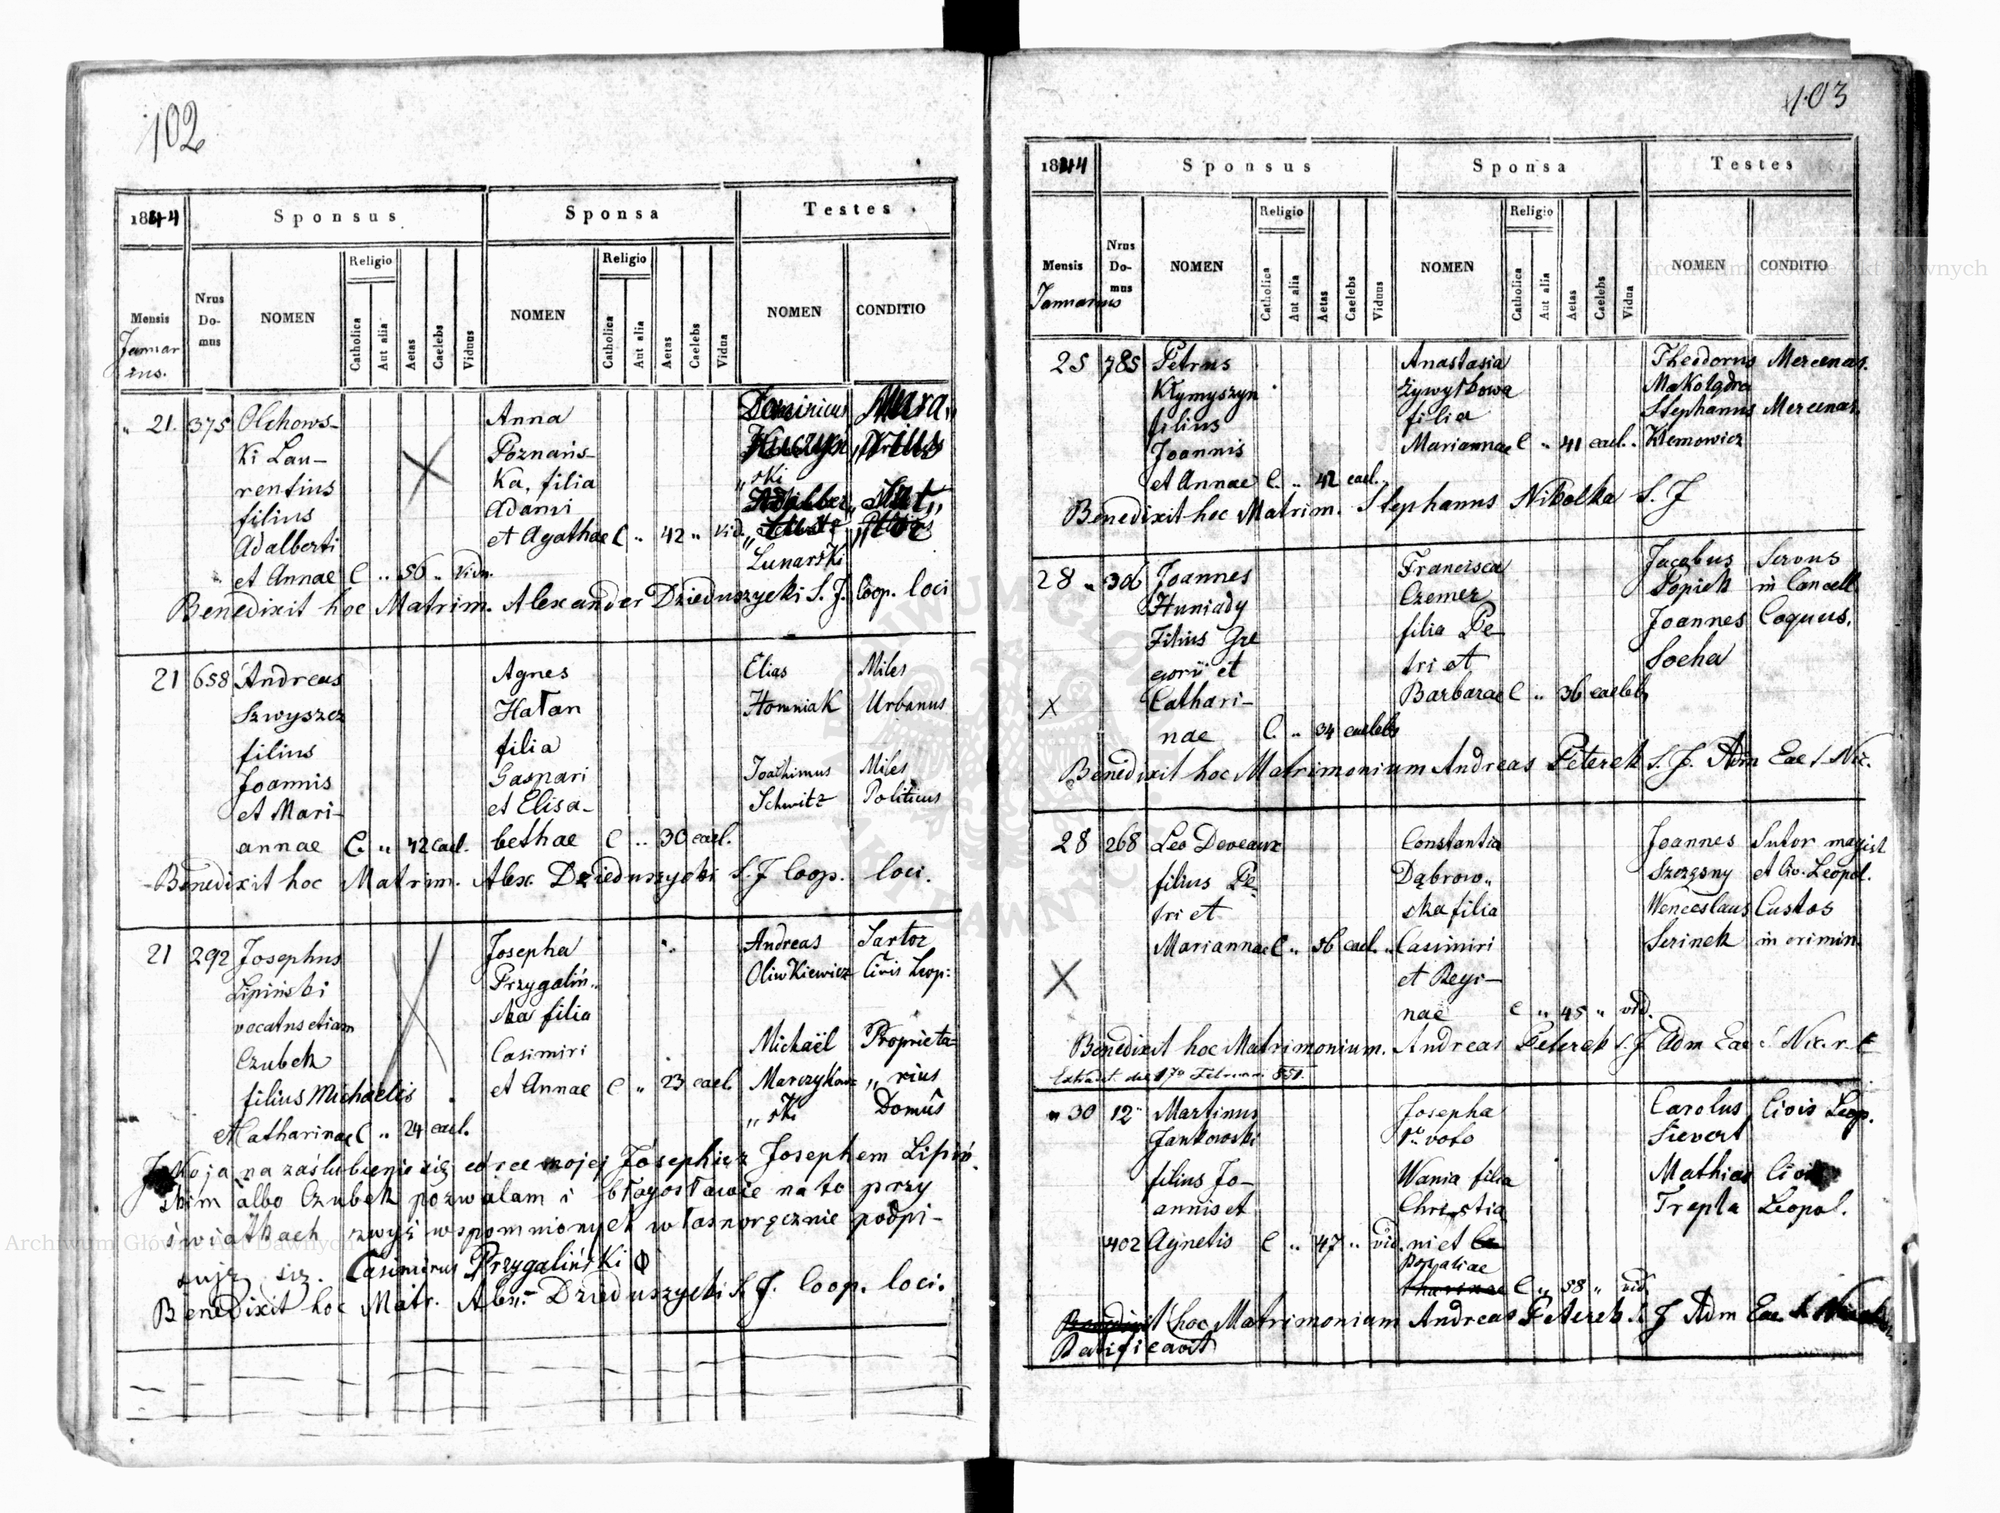 102
1844
Sponsus
Sponsa
Testes
Mensis
Januar
ius.
Nrus
Do-
mus
NOMEN
Religio
Catholica
Aut alia
Aetas
Caelebs
Viduus
NOMEN
Religio
Catholica
Aut alia
Aetas
Caelebs
Vidua
NOMEN
CONDITIO
" 21. 375 Olchows-
ki Lau-
rentius
filius
Adalberti
et Annae C " 56 " vidu.
Anna
Poznańs-
ka, filia
Adami
et Agathae C " 42 " vid.
Dominicus
"ski
Lunarski
Benedixit hoc Matrim. Alexander Dzieduszycki S. J. Coop. loci
21 658 Andreas
Szwyszcz
filius
Joannis
et Mari-
annae C. " 42 cael.
Agnes
Hatan
filia
Gaspari
et Elisa-
bethae C " 30 cael.
Elias Miles
Homniak Urbanus
Joachimus Miles
Schwitz Politicus
Benedixit hoc Matrim. Alex. Dzieduszycki S. J Coop. loci.
21 292 Josephus
Lipiński
vocatus etiam
Czubek
filius Michaelis
et Catharinae C " 24 cael.
Josepha
Przygaliń-
ska filia
Casimiri
et Annae C " 23 cael.
Andreas Sartor
Oliwkiewicz Civis Leop:
Michaël Proprieta-
Marczykow- "rius
"ski Domûs
Jako ja na zaślubienie się córce mojej Josephie z Josephem Lipiń-
skim albo Czubek pozwalam i błogosławię na to przy
świadkach zwyż wspomnionych własnoręcznie podpi-
suję się. Casimirus Przygaliński
Benedixit hoc Matr. Alex. Dzieduszycki S. J. Coop. loci.
103
1844
Sponsus
Sponsa
Testes
Mensis
Januarius
Nrus
Do-
mus
NOMEN
Religio
Catholica
Aut alia
Aetas
Caelebs
Viduus
NOMEN
Religio
Catholica
Aut alia
Aetas
Caelebs
Vidua
NOMEN
CONDITIO
25 785 Petrus
Kłymyszyn
filius
Joannis
et Annae C. " 42 cael.
Anastasia
Żywytkowa
filia
Mariannae C " 41 cael.
Theodorus Mercenar.
Makolądra
Stephanus Mercenar.
Klemowicz
Benedixit hoc Matrim. Stephanus Nikolka S. J
28 " 306 Joannes
Huniady
Filius Gre
gorii et
Cathari-
nae C. " 34 caelebs
Francisca
Czemer
filia Pe-
tri et
Barbarae C " 36 caelebs
Jacobus Servus
Sopich in Cancell
Joannes Coquus.
Socha
Benedixit hoc Matrimonium Andreas Peterek S. J. Adm Eae S. Nic.
28 268 Leo Deveaux
filius Pe-
tri et
Mariannae C " 56 cael.
Constantia
Dąbrow-
ska filia
Casimiri
et Regi-
nae C " 45 " vid.
Joannes Sutor magist
Szczęsny et Civ. Leopol.
Wenceslaus Custos
Serinek in crimin
Benedixit hoc Matrimonium. Andreas Peterek S. J Adm Eae S. Nic.
Extradit. die 17a Februari 851.
" 30 12 Martinus
Jankowski
filius Jo-
annis et
402 Agnetis C " 47 " vid.
Josepha
1o voto
Wania filia
Christia
ni et
Rozaliae
C " 38 " vid.
Carolus Civis Leop.
Sievert
Mathias Civis
Trepta Leopol.
Benedixit hoc Matrimonium Andreas Peterek S. J Adm Eae S.
Ratificavit
Archiwum Główne Akt Dawnych